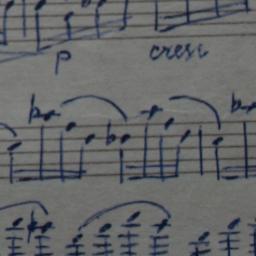 p cresc